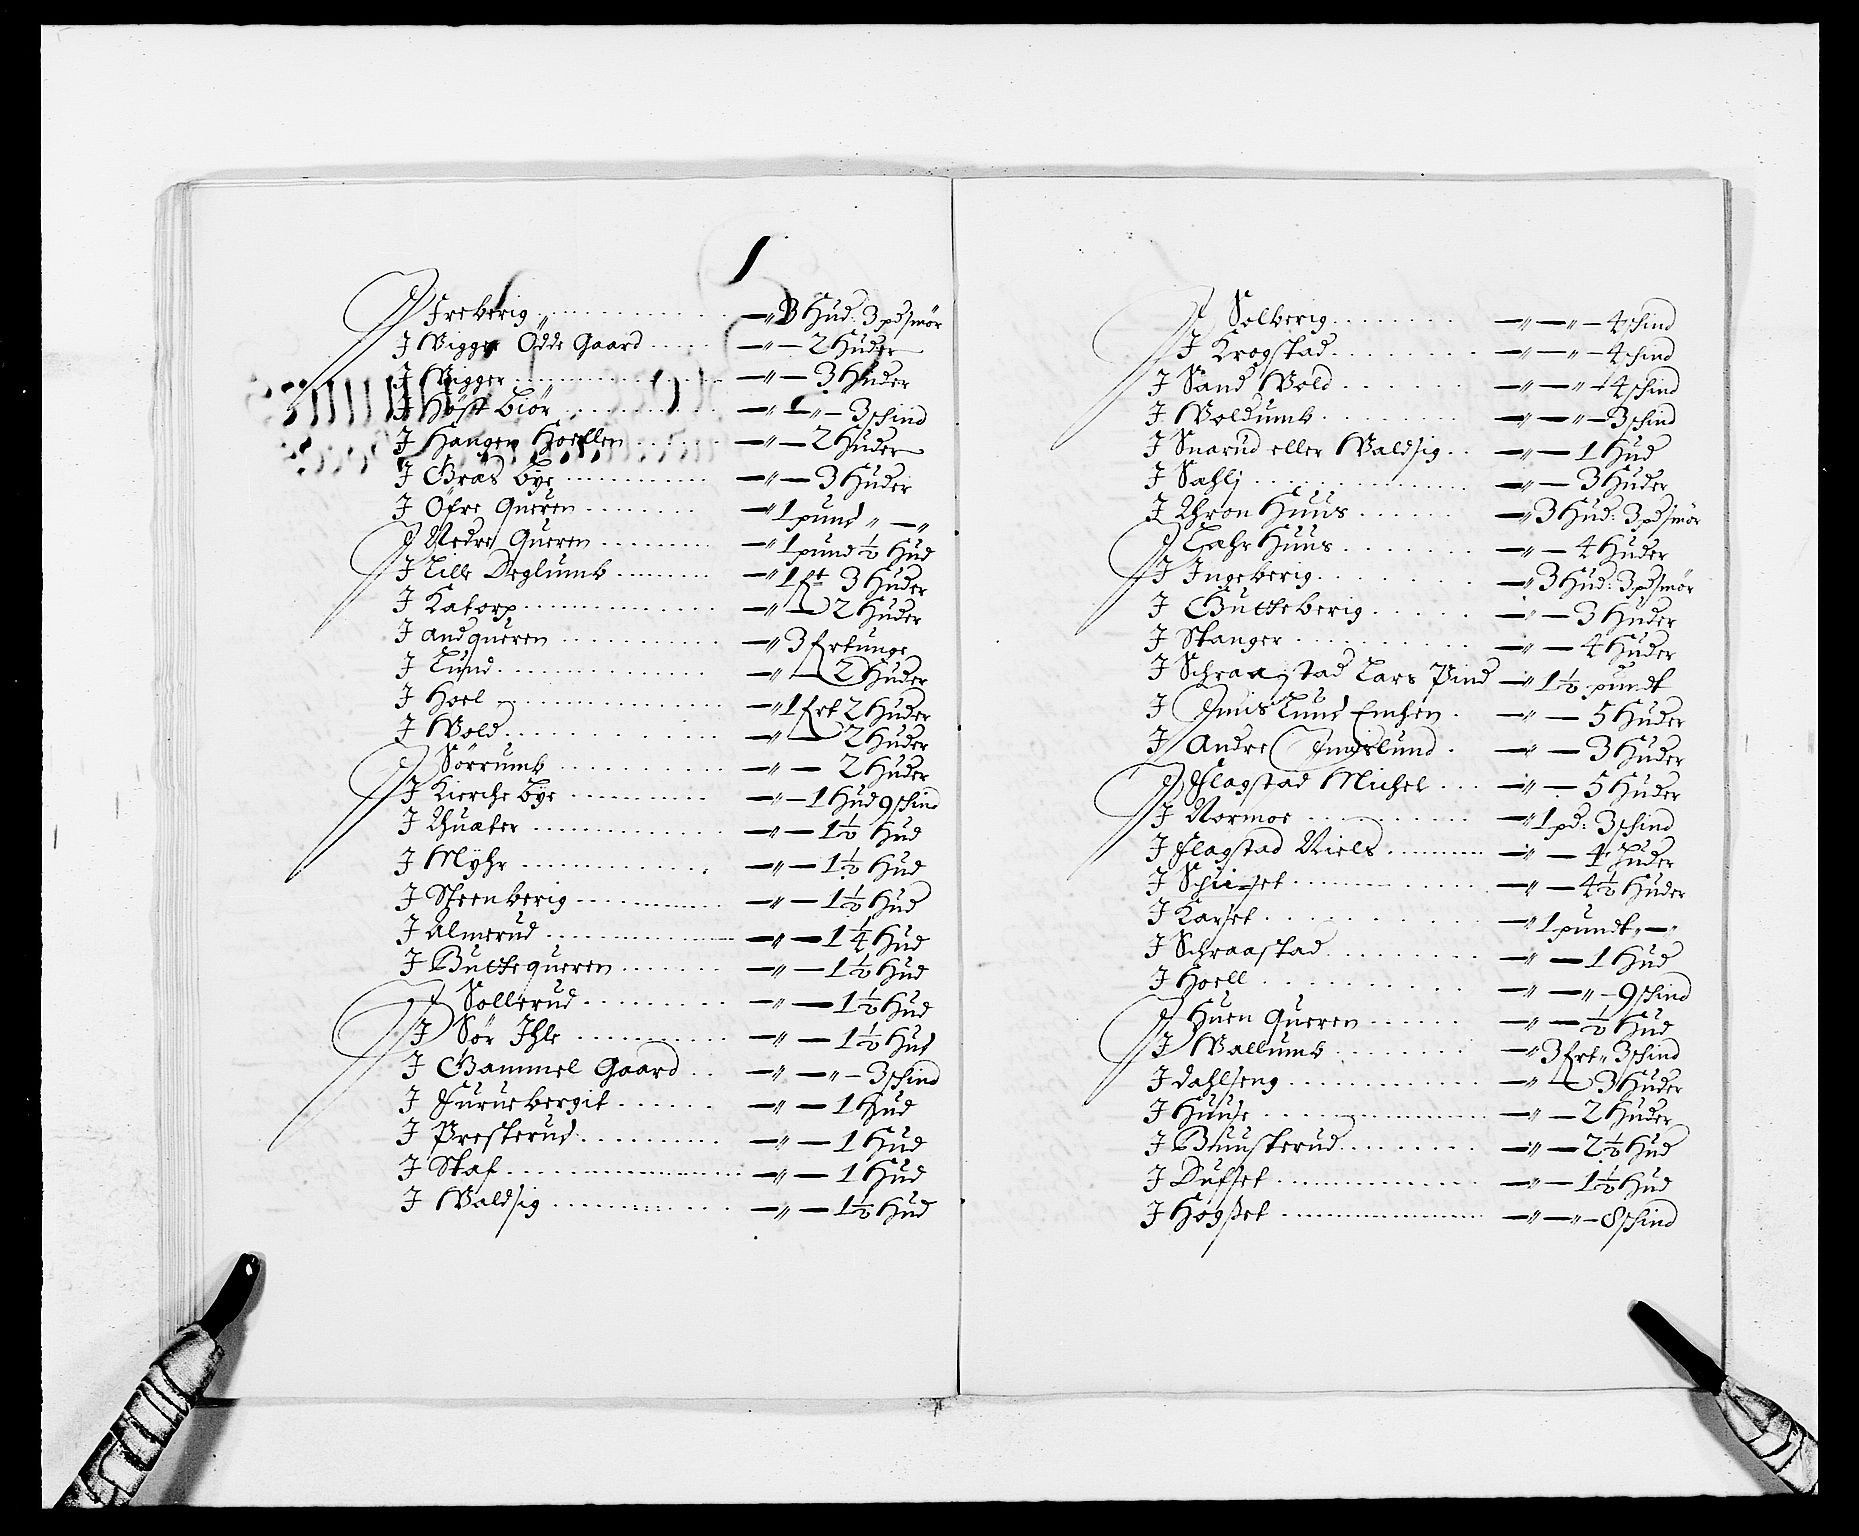 J Freberig —〃 3 Hud: 3 pd smör
J Vigger Ödde Gaard —〃— 2 Huder
J Vigger —〃— 3 Huder
J Höst biör —〃 1〃— 3 schind
J Hangen Hoeflen —〃— 2 Huder
J Gräs bye —〃— 3 Huder
J Ofre Queren —〃 1 pund 〃 —〃
J Nedre Queren —〃 1 pund ½ Hud
J Lille Deglumb —〃 1 frt 3 Huder
J Katorp —〃— 2 Huder
J Andqueren —〃 3 frtunge
J Lund —〃— 2 Huder
J Hoel —〃 1 frt 2 Huder
J Vold —〃— 2 Huder
J Sörrumb —〃— 2 Huder
J Kierche bye —〃— 1 Hud 9 schind
J Thuater —〃— 1½ Hud
J Mÿhr —〃— 1½ Hud
J Steenberig —〃— 1½ Hud
J Almerud —〃— 1¼ Hud
J Buttequeren —〃— 1½ Hud
J Sollerud —〃— 1½ Hud
J Sör Ihle —〃— 1½ Hud
J Gammel Gaard —〃—〃— 3 schind
J Furuebergit —〃— 1 Hud
J Presterud —〃— 1 Hud
J Staf —〃— 1 Hud
J Valdsig —〃— 1½ Hud
J Solberig —〃—〃— 4 schind
J Krogstad —〃—〃— 4 schind
J Sand Vold —〃—〃— 4 schind
J Voldumb —〃—〃— 3 schind
J Snarud eller Valdsig —〃— 1 Hud
J Sahlj —〃— 3 Huder
J Thron Huus —〃 3 Hud: 3 pd smör
J Lahr Huus —〃— 4 Huder
J Ingeberig —〃 3 Hud: 3 pd smör
J Gutteberig —〃— 3 Huder
J Stanger —〃— 4 Huder
J Schraastad Lars Pind —〃 1½ pundt
J Imislund Enchen —〃— 5 Huder
J Andre Imislund —〃— 3 Huder
J Flagstad Michel —〃— 5 Huder
J Normoe —〃 1 pd: 3 schind
J Flagstad Niels —〃— 4 Huder
J Schieset —〃— 4½ Huder
J Karset —〃 1 pundt 〃—〃
J Schraastad —〃— 1 Hud
J Hoell —〃—〃— 9 schind
J Huen Queren —〃— ½ Hud
J Vallumb —〃 3 frt 〃 3 schind
J Dahlseng —〃— 3 Huder
J Huuse —〃— 2 Huder
J Buusterud —〃— 2½ Hud
J Dufset —〃— 1½ Hud
J Högßet —〃—〃— 8 schind